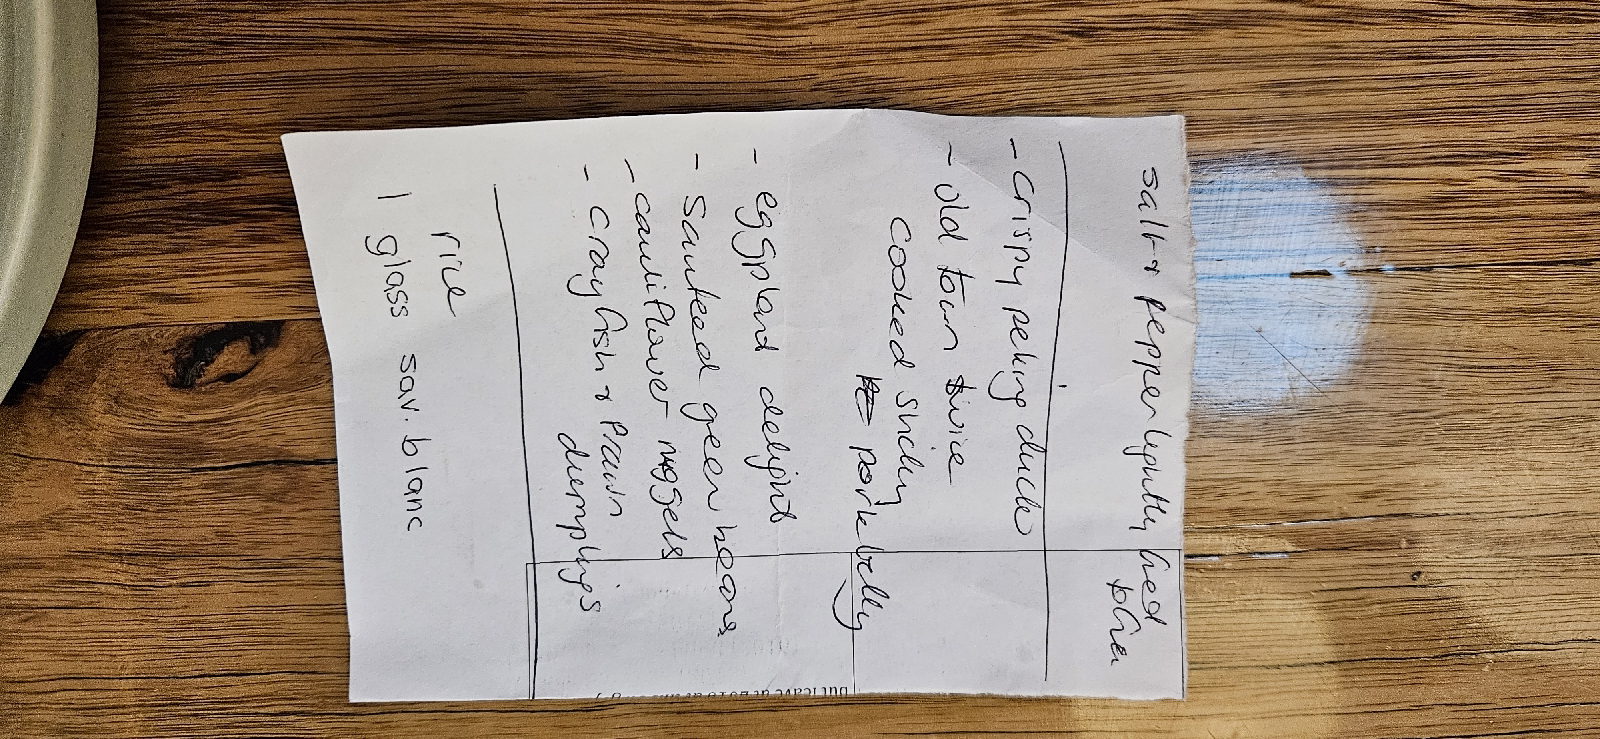 salt + pepper lightly fried
tofu
- Crispy peking duck
- old town twice
cooked sticky
pork belly
- eggplant delight
- Sauteed green beans
- cauliflower nuggets
- crayfish + Prawn
dumplings
rice
1 glass sav. blanc